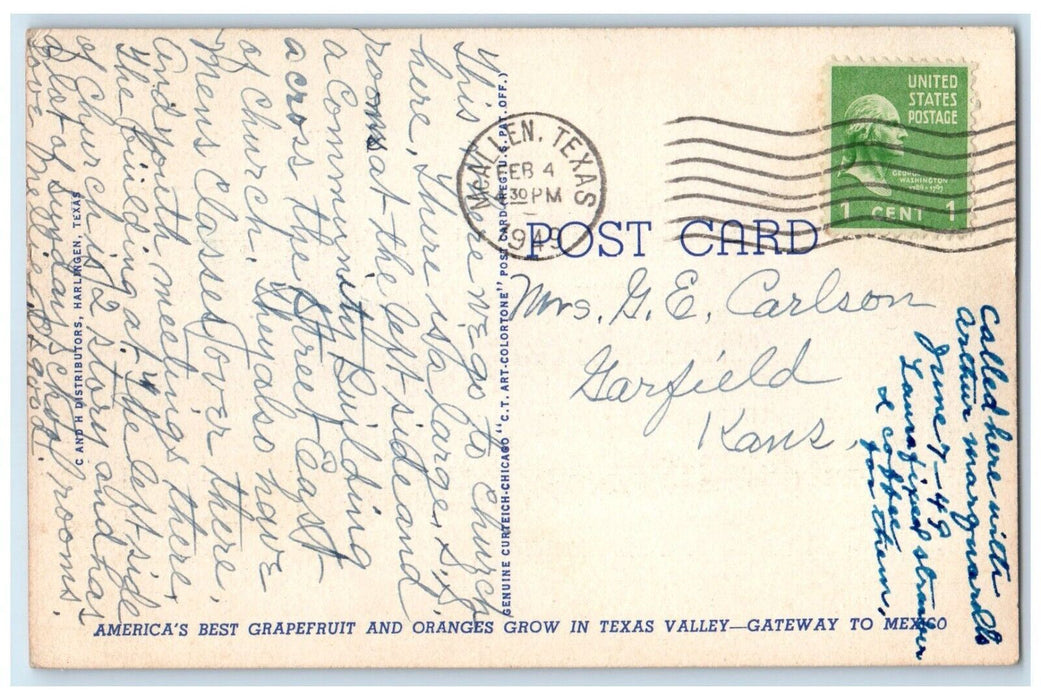 This is where we go to Church
here. There is a large S.S.
rooms at the left side and
a Community Building
across the street East
of Church. They also have
Men's Classes over there,
and youth meetings there,
the building at the left side
of Church is 2 story and has
a lot of Sunday school rooms.
Love Nellie
C AND H DISTRIBUTORS, HARLINGEN, TEXAS
GENUINE CURTEICH-CHICAGO "C.T. ART-COLORTONE" POST CARD (REG. U.S. PAT. OFF.)
McALLEN, TEXAS
FEB 4
30 PM
1949
UNITED
STATES
POSTAGE
GEORGE
WASHINGTON
1789-1797
1 CENT 1
POST CARD
Mrs. G. E. Carlson
Garfield
Kans.
Called here with
Arthur Marquardts
June 7-49
Laura fixed
& coffee
for them.
AMERICA'S BEST GRAPEFRUIT AND ORANGES GROW IN TEXAS VALLEY—GATEWAY TO MEXICO